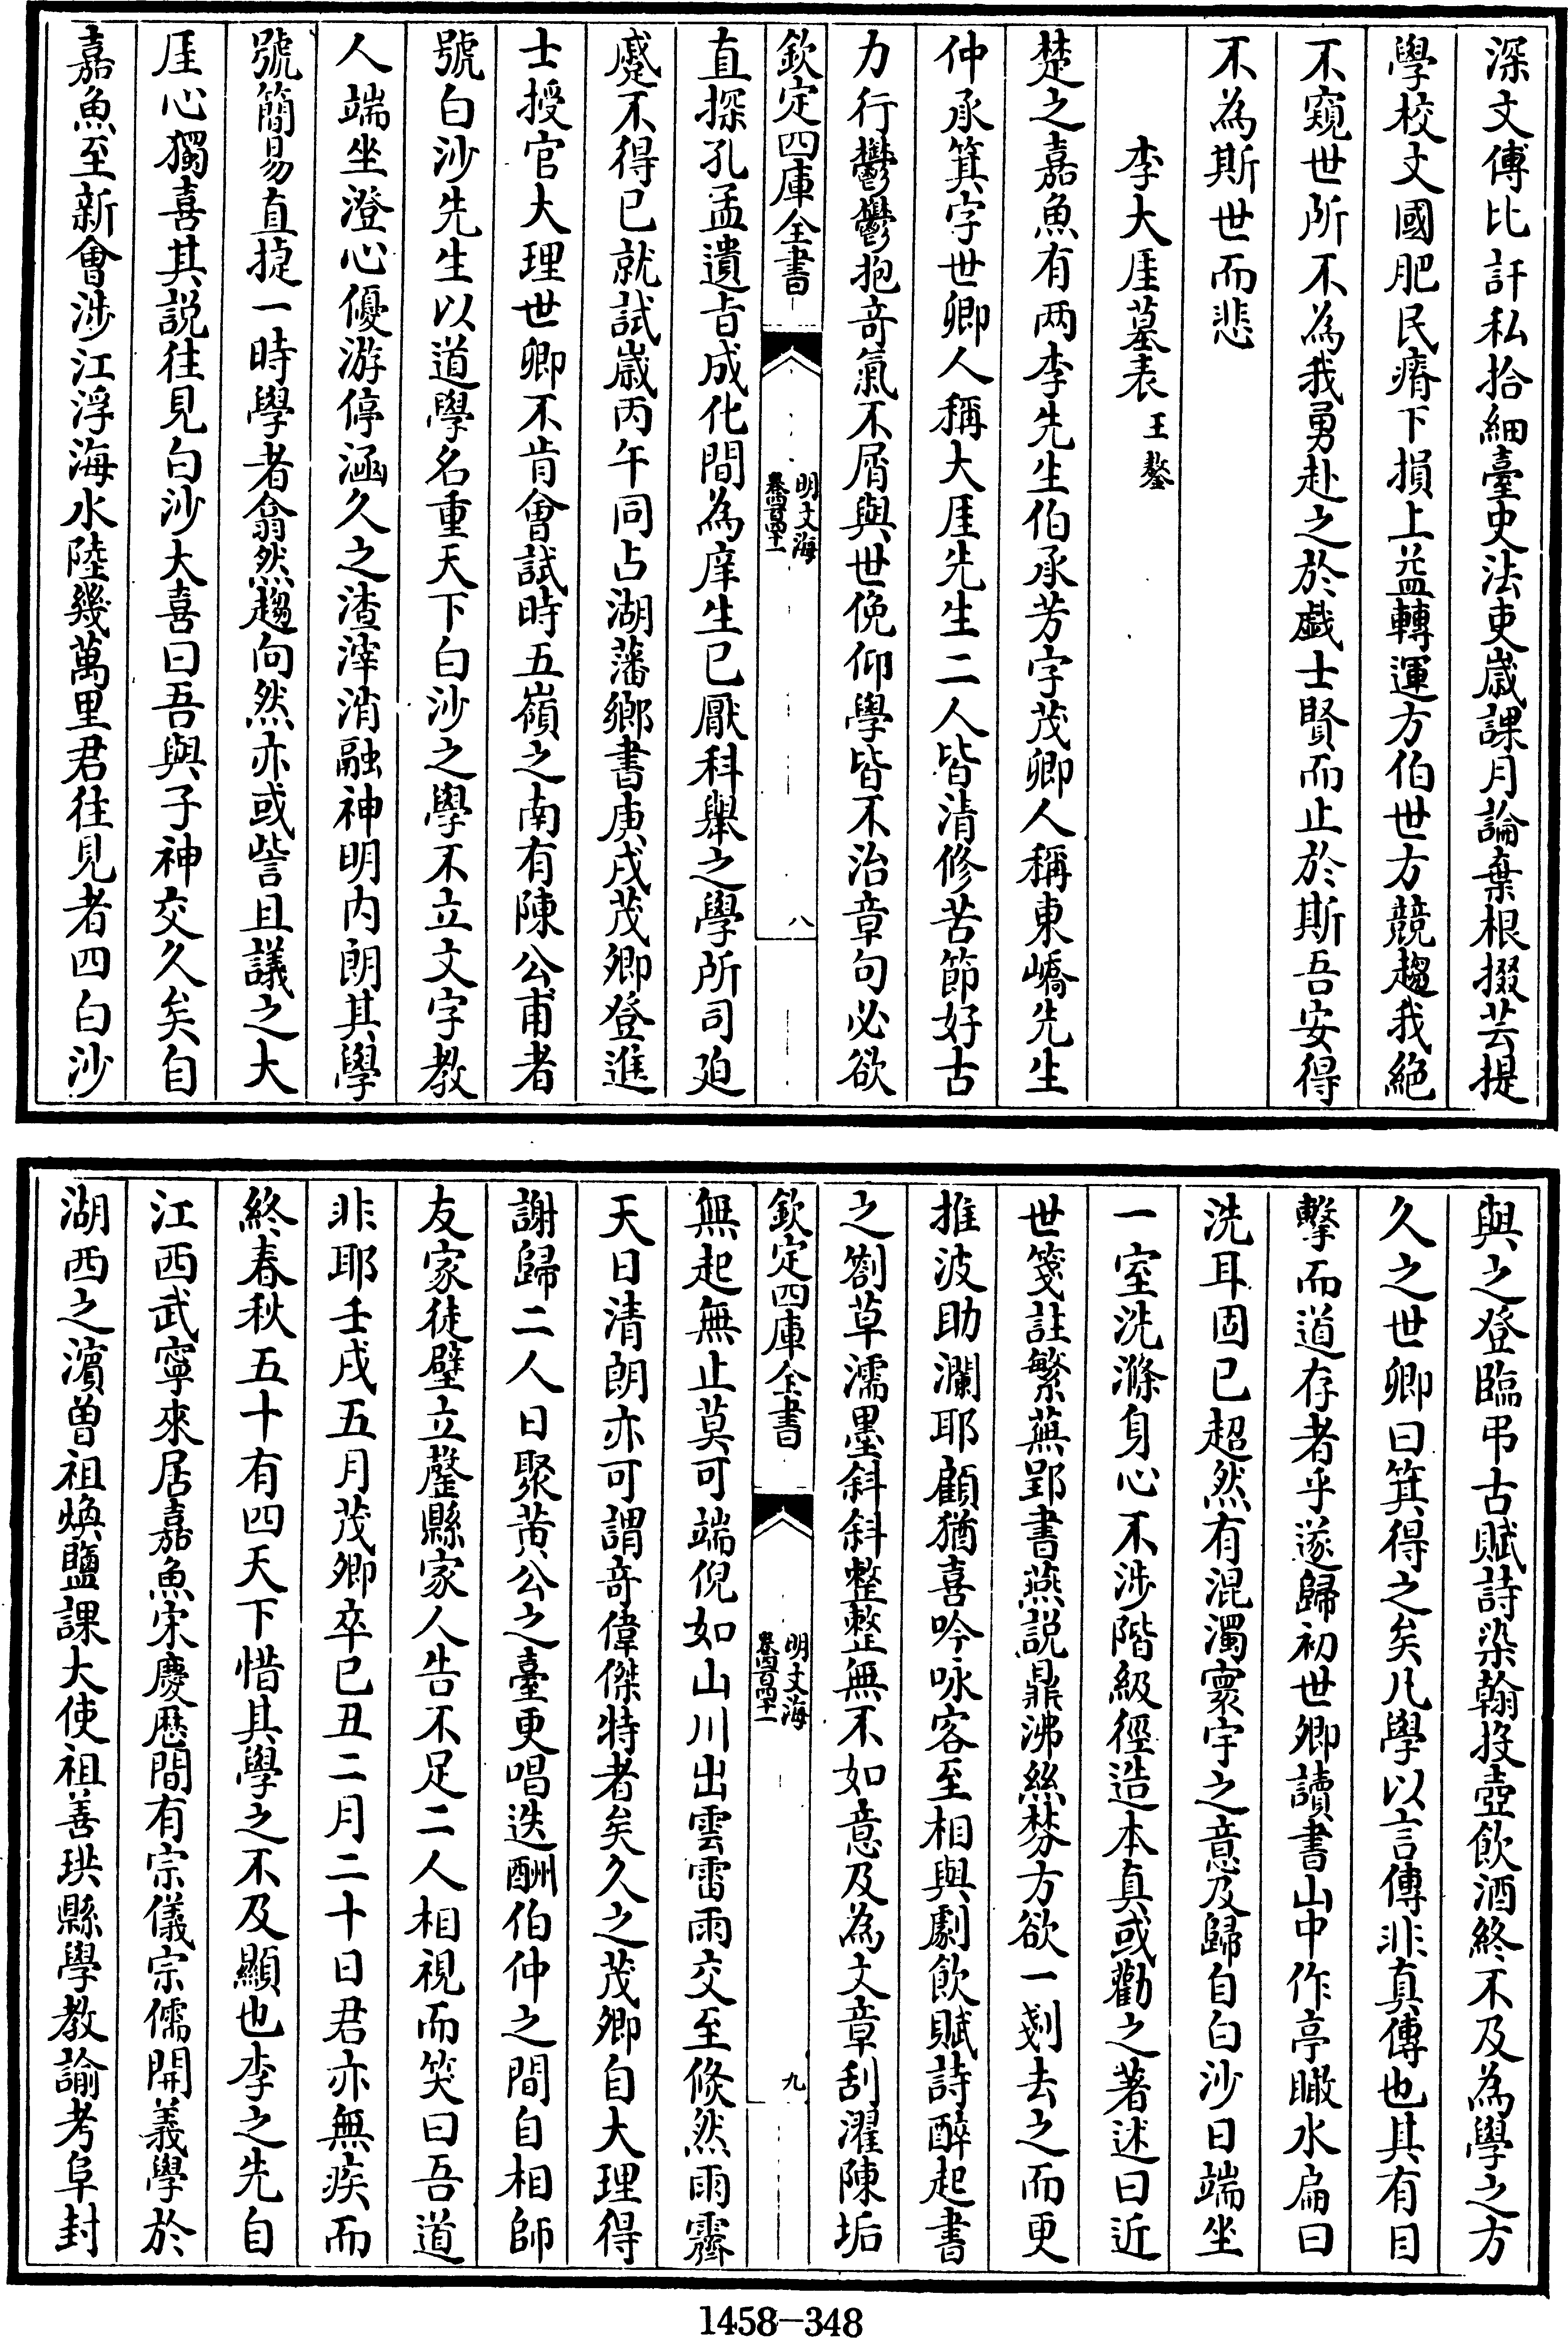 深文傅比訐私拾細臺史法吏嵗課月論棄根掇芸提
學校文國肥民瘠下損上益轉運方伯世方競趨我絕
不窺世所不為我勇赴之於戯士賢而止於斯吾安得
不為斯世而悲
李大厓墓表王鏊
楚之嘉魚有两李先生伯承芳字茂卿人稱東嶠先生
仲承箕字世卿人稱大厓先生二人皆清修苦節好古
力行鬱鬱抱竒氣不屑與世俛仰學皆不治章句必欲
欽定四庫全書
明文海
卷四百四十一
八
直探孔孟遺旨成化間為庠生已厭科舉之學所司廹
蹙不得已就試嵗丙午同占湖藩鄉書庚戌茂卿登進
士授官大理世卿不肯會試時五嶺之南有陳公甫者
號白沙先生以道學名重天下白沙之學不立文字教
人端坐澄心優游停涵久之渣滓消融神明内朗其學
號簡易直捷一時學者翕然趨向然亦或訾且議之大
厓心獨喜其説往見白沙大喜曰吾與子神交久矣自
嘉魚至新會涉江浮海水陸幾萬里君往見者四白沙
與之登臨弔古賦詩染翰投壺飲酒終不及為學之方
久之世卿曰箕得之矣凡學以言傳非真傳也其有目
擊而道存者乎遂歸初世卿讀書山中作亭瞰水扁曰
洗耳固已超然有混濁寰宇之意及歸自白沙日端坐
一室洗滌身心不涉階級徑造本真或勸之著述曰近
世箋註繁蕪郢書燕説鼎沸絲棼方欲一剗去之而更
推波助瀾耶顧猶喜吟咏客至相與劇飲賦詩醉起書
之劄草濡墨斜斜整整無不如意及為文章刮濯陳垢
欽定四庫全書
明文海
卷四百四十一
九
無起無止莫可端倪如山川出雲雷雨交至倐然雨霽
天日清朗亦可謂竒偉傑特者矣久之茂卿自大理得
謝歸二人日聚黄公之臺更唱迭酬伯仲之間自相師
友家徒壁立罄縣家人告不足二人相視而笑曰吾道
非耶壬戌五月茂卿卒巳丑二月二十日君亦無疾而
終春秋五十有四天下惜其學之不及顯也李之先自
江西武寧來居嘉魚宋慶歴間有宗儀宗儒開義學於
湖西之濵曽祖煥鹽課大使祖善珙縣學教諭考阜封
1458-348